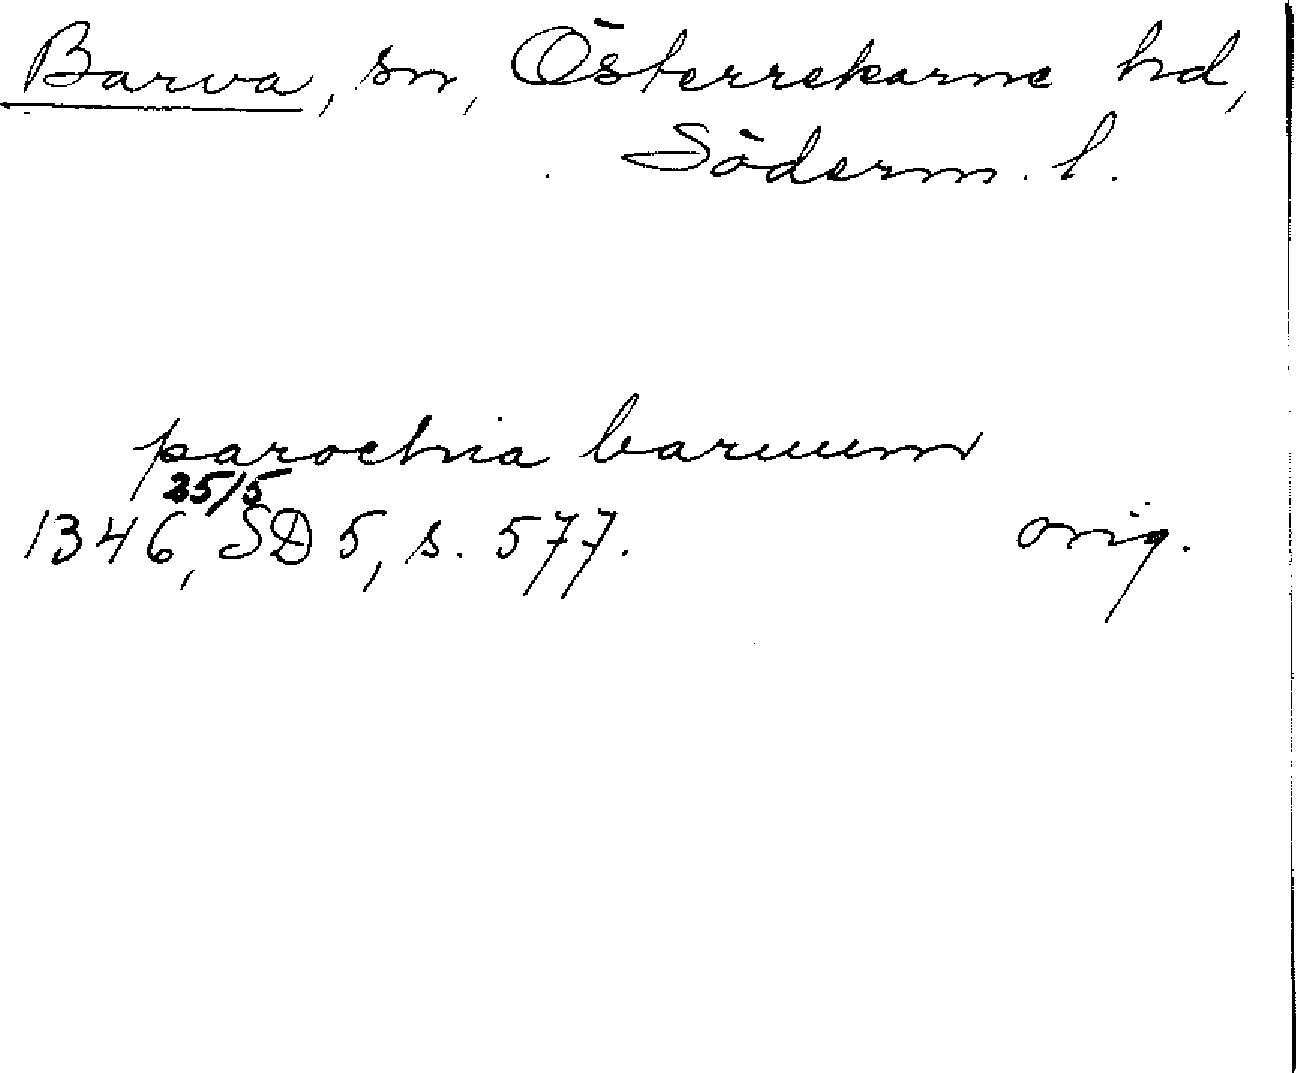 Barva, sn, Österrekarne hd,
Söderm. l.
parochia baruum
25/5
1346, SD 5, s. 577. orig.